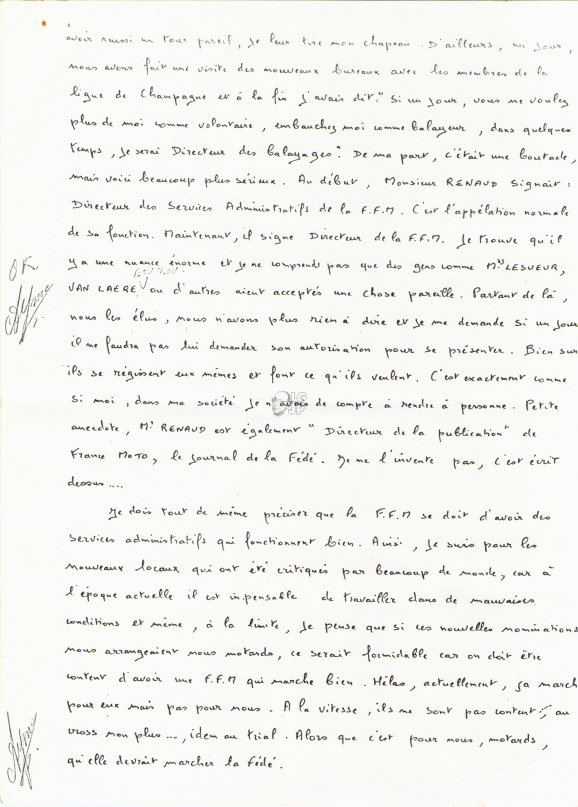 avoir réussi un tour pareil, je leur tire mon chapeau. D'ailleurs, un jour,
nous avons fait une visite des nouveaux bureaux avec les membres de la
ligue de Champagne et à la fin j'avais dit : " Si un jour, vous ne voulez
plus de moi comme volontaire, embauchez moi comme balayeur, dans quelques
temps, je serai Directeur des balayages". De ma part, c'était une boutade,
mais voici beaucoup plus sérieux. Au début, Monsieur RENAUD signait :
Directeur des Services Administratifs de la F.F.M. C'est l'appélation normale
de sa fonction. Maintenant, il signe Directeur de la F.F.M. Je trouve qu'il
y a une nuance énorme et je ne comprends pas que des gens comme Mrs LESUEUR,
OK
VAN LAERE, ou d'autres aient acceptés une chose pareille. Partant de là,
nous les élus, nous n'avons plus rien à dire et je me demande si un jour
il ne faudra pas lui demander son autorisation pour se présenter. Bien sur
ils se régissent eux mêmes et font ce qu'ils veulent. C'est exactement comme
si moi, dans ma société je n'avais de compte à rendre à personne. Petite
anecdote, Mr RENAUD est également " Directeur de la publication" de
France MOTO, le journal de la Fédé. Je ne l'invente pas, c'est écrit
dessus ....
Je dois tout de même préciser que la F.F.M se doit d'avoir des
services administratifs qui fonctionnent bien. Ainsi, je suis pour les
nouveaux locaux qui ont été critiqués par beaucoup de monde, car à
l'époque actuelle il est inpensable de travailler dans de mauvaises
conditions et même, à la limite, je pense que si ces nouvelles nominations
nous arrangeaient nous motards, ce serait formidable car on doit être
content d'avoir une F.F.M qui marche bien. Hélas, actuellement, ça march
pour eux mais pas pour nous. A la vitesse, ils ne sont pas content, au
cross non plus ..., idem au trial. Alors que c'est pour nous, motards,
qu'elle devrait marcher la fédé.